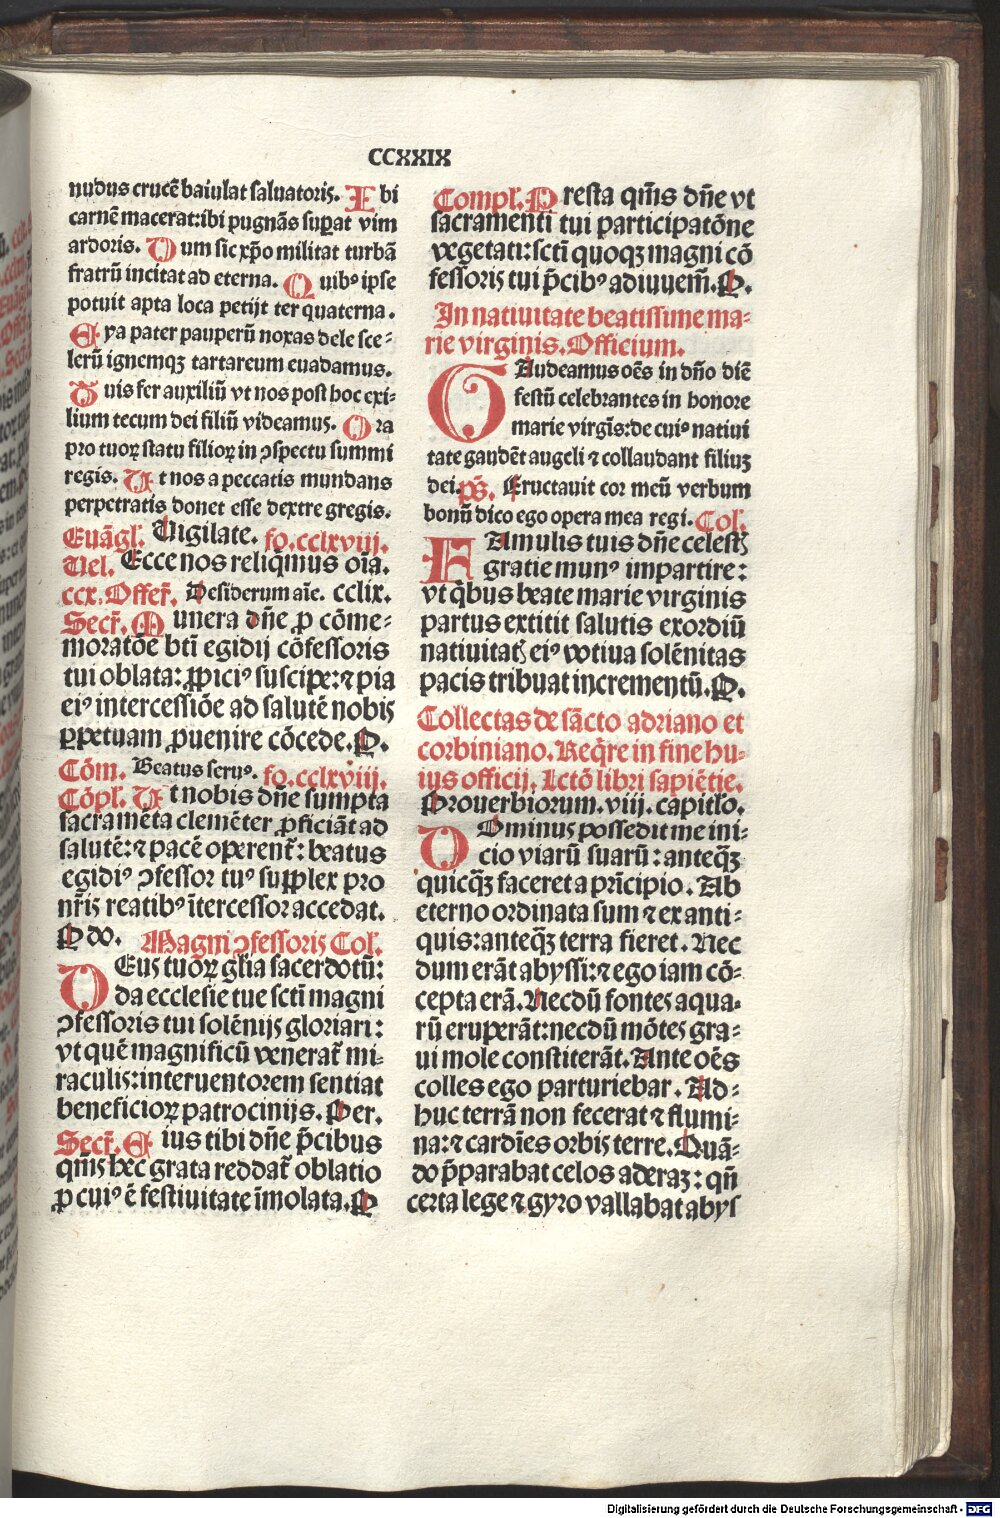 CCXXIX
nudus crucē baiulat saluatoris. I bi
carnē macerat:ibi pugnās suꝑat vim
ardoris. D um sic xp̄o militat turbā
fratrū incitat ad eterna. Q uibꝰ ipse
potuit apta loca petijt ter quaterna.
E ya pater pauperū noxas dele sce⸗
lerū ignemqꝫ tartareum euadamus.
D uis fer auxiliū vt nos post hoc exi⸗
lium tecum dei filiū videamus. O ra
pro tuoꝝ statu filioꝝ in ꝯspectu summi
regis. U t nos a peccatis mundans
perpetratis donet esse dextre gregis.
Euāgl. Vigilate. fo.cclxviij.
Uel. Ecce nos reliq̄mus oīa.
ccx. Offer̄. Desiderum aīe. cclix.
Secr̄. M unera dn̄e ꝓ cōme⸗
moratōe bt̄i egidij cōfessoris
tui oblata: ꝓpiciꝰ suscipe:⁊ pia
eiꝰ intercessiōe ad salutē nobis
ꝑpetuam ꝓuenire cōcede. P.
Cōm. Beatus seruꝰ. fo.cclxviij.
Cōpl. U t nobis dn̄e sumpta
sacramēta clemēter ꝓficiāt ad
salutē:⁊ pacē operent̄: beatus
egidiꝰ ꝯfessor tuꝰ supplex pro
nr̄is reatibꝰ ītercessor accedat.
P do. Magni ꝯfessoris Col.
D Eus tuoꝝ glia sacerdotū:
da ecclesie tue sct̄i magni
ꝯfessoris tui solēnijs gloriari:
vt quē magnificū venerat̄ mi⸗
raculis:interuentorem sentiat
beneficioꝝ patrocinijs. P er.
Secr̄. E ius tibi dn̄e p̄cibus
qm̄s hec grata reddat̄ oblatio
ꝓ cuiꝰ ē festiuitate īmolata. P
Compl. P resta qm̄s dn̄e vt
sacramenti tui participatōne
vegetati:sct̄i quoqꝫ magni cō
fessoris tui p̄cibꝰ adiuuem̄. P.
In natiuitate beatissime ma⸗
rie virginis. Officium.
G Audeamus oēs in dn̄o diē
festū celebrantes in honore
marie virgīs:de cuiꝰ natiui
tate gaudēt angeli ⁊ collaudant filiuꝫ
dei. ps̄. Eructauit cor meū verbum
bonū dico ego opera mea regi. Col.
F Amulis tuis dn̄e celestꝭ
gratie munꝰ impartire:
vt q̄bus beate marie virginis
partus extitit salutis exordiū
natiuitatꝭ eiꝰ votiua solēnitas
pacis tribuat incrementū. P.
Collectas de sācto adriano et
corbiniano. Reqr̄e in fine hu⸗
ius officij. Lctō libri sapiētie.
Prouerbiorum.viij. capitlo.
D Ominus possedit me ini⸗
cio viarū suarū: anteqꝫ
quicqꝫ faceret a prīcipio. Ab
eterno ordinata sum ⁊ ex anti⸗
quis:anteqꝫ terra fieret. Nec
dum erāt abyssi:⁊ ego iam cō⸗
cepta erā. Necdū fontes aqua⸗
rū eruperāt:necdū mōtes gra⸗
ui mole constiterāt. Ante oēs
colles ego parturiebar. Ad⸗
huc terrā non fecerat ⁊ flumi⸗
na:⁊ cardīes orbis terre. Quā⸗
do p̄parabat celos aderaꝫ: qn̄
certa lege ⁊ gyro vallabat abys
Digitalisierung gefördert durch die Deutsche Forschungsgemeinschaft - DFG